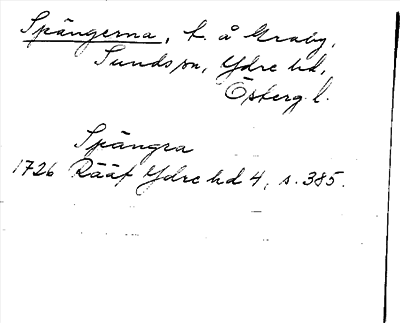 Spängerna, t. å Graby,
Sunds sn, Ydre hd,
Österg. l.
Spängra
1726 Rääf Ydre hd 4, s. 385.